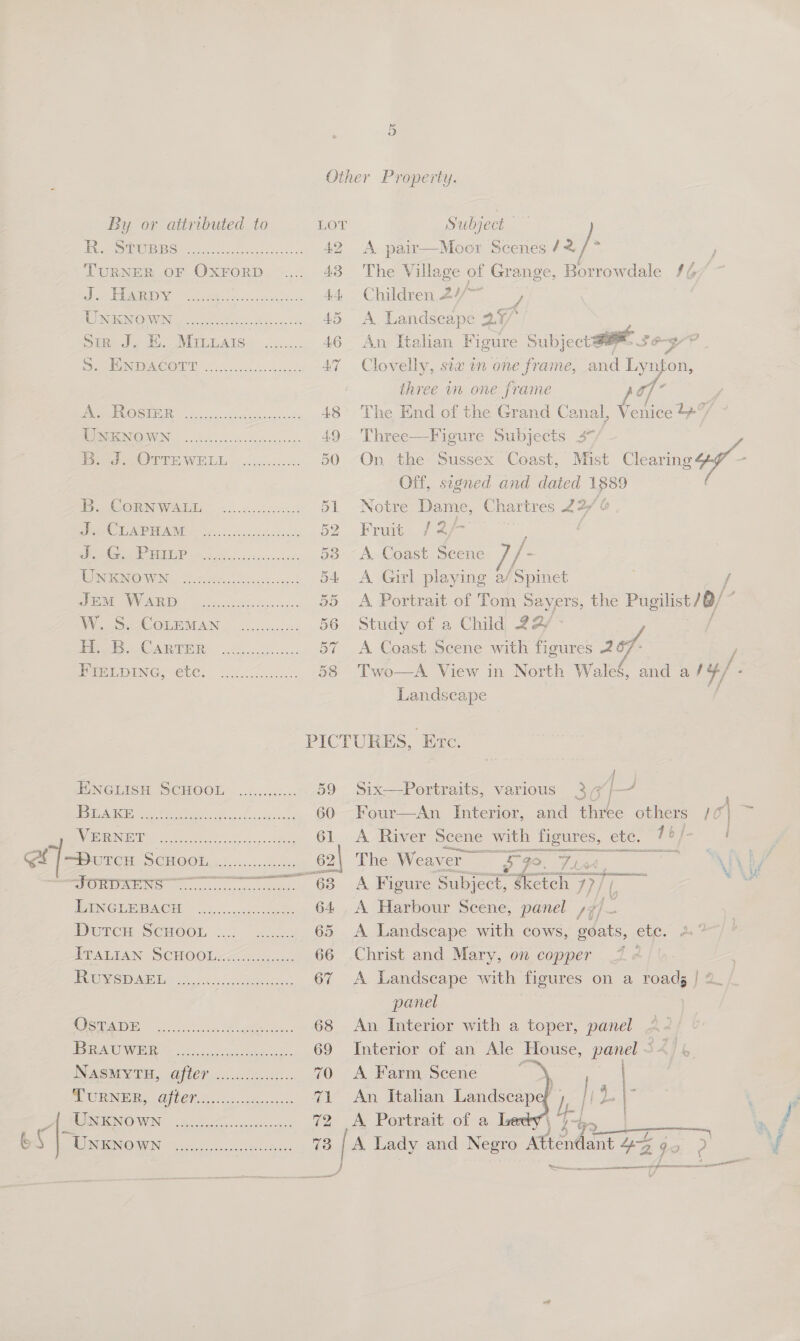 5
Other Property.
By or attributed to LOT Subject
R. STUBBS 42 A pair—Moor Scenes 12/-
TURNER OF OXFORD 43 The Village of Grange, Borrowdale
J. HARDY 44 Children 21/-
UNKNOWN 45 A Landscape
SIR J. E. MILLAIS 46 An Italian Figure Subject
S. ENDACOTT 47 Clovelly, six in one frame, and Lynton,
three in one frame
A. HOSIER 48 The End of the Grand Canal, Venice
UNKNOWN 49 Three—Figure Subjects
B. J. OTTEWELL 50 On the Sussex Coast, Mist Clearing
Off, signed and dated 1889
B. CORNWALL 51 Notre Dame, Chartres 22/6
J. CLAPHAM 52 Fruit 12/-
J. G. PHILP 53 A Coast Scene 7/-
UNKNOWN 54 A Girl playing a Spinet
JEM WARD 55 A Portrait of Tom Sayers, the Pugilist
W. S. COLEMAN 56 Study of a Child 22/-
H. B. CARTER 57 A Coast Scene with figures
FIELDING, etc. 58 Two—A View in North Wales, and a 14/-
Landscape
PICTURES, ETC.
ENGLISH SCHOOL 59 Six—Portraits, various
BLAKE 60 Four—An Interior, and three others
VERNET 61 A River Scene with figures, etc.
DUTCH SCHOOL 62 The Weaver
JORDAENS 63 A Figure Subject, sketch
LINGLEBACH 64 A Harbour Scene, panel
DUTCH SCHOOL 65 A Landscape with cows, goats, etc.
ITALIAN SCHOOL 66 Christ and Mary, on copper
RUYSDAEL 67 A Landscape with figures on a road,
panel
OSTADE 68 An Interior with a toper, panel
BRAUWER 69 Interior of an Ale House, panel
NASMYTH, after 70 A Farm Scene
TURNER, after 71 An Italian Landscape
UNKNOWN 72 A Portrait of a
UNKNOWN 73 A Lady and Negro Attendant